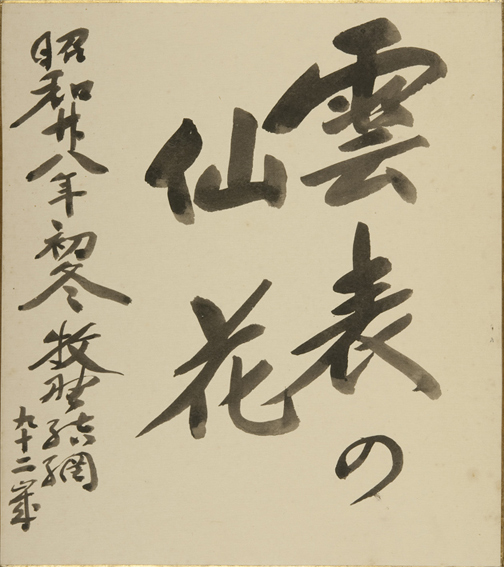 雲表の
仙花
昭和廿八年初冬 牧野結網
九十二歳